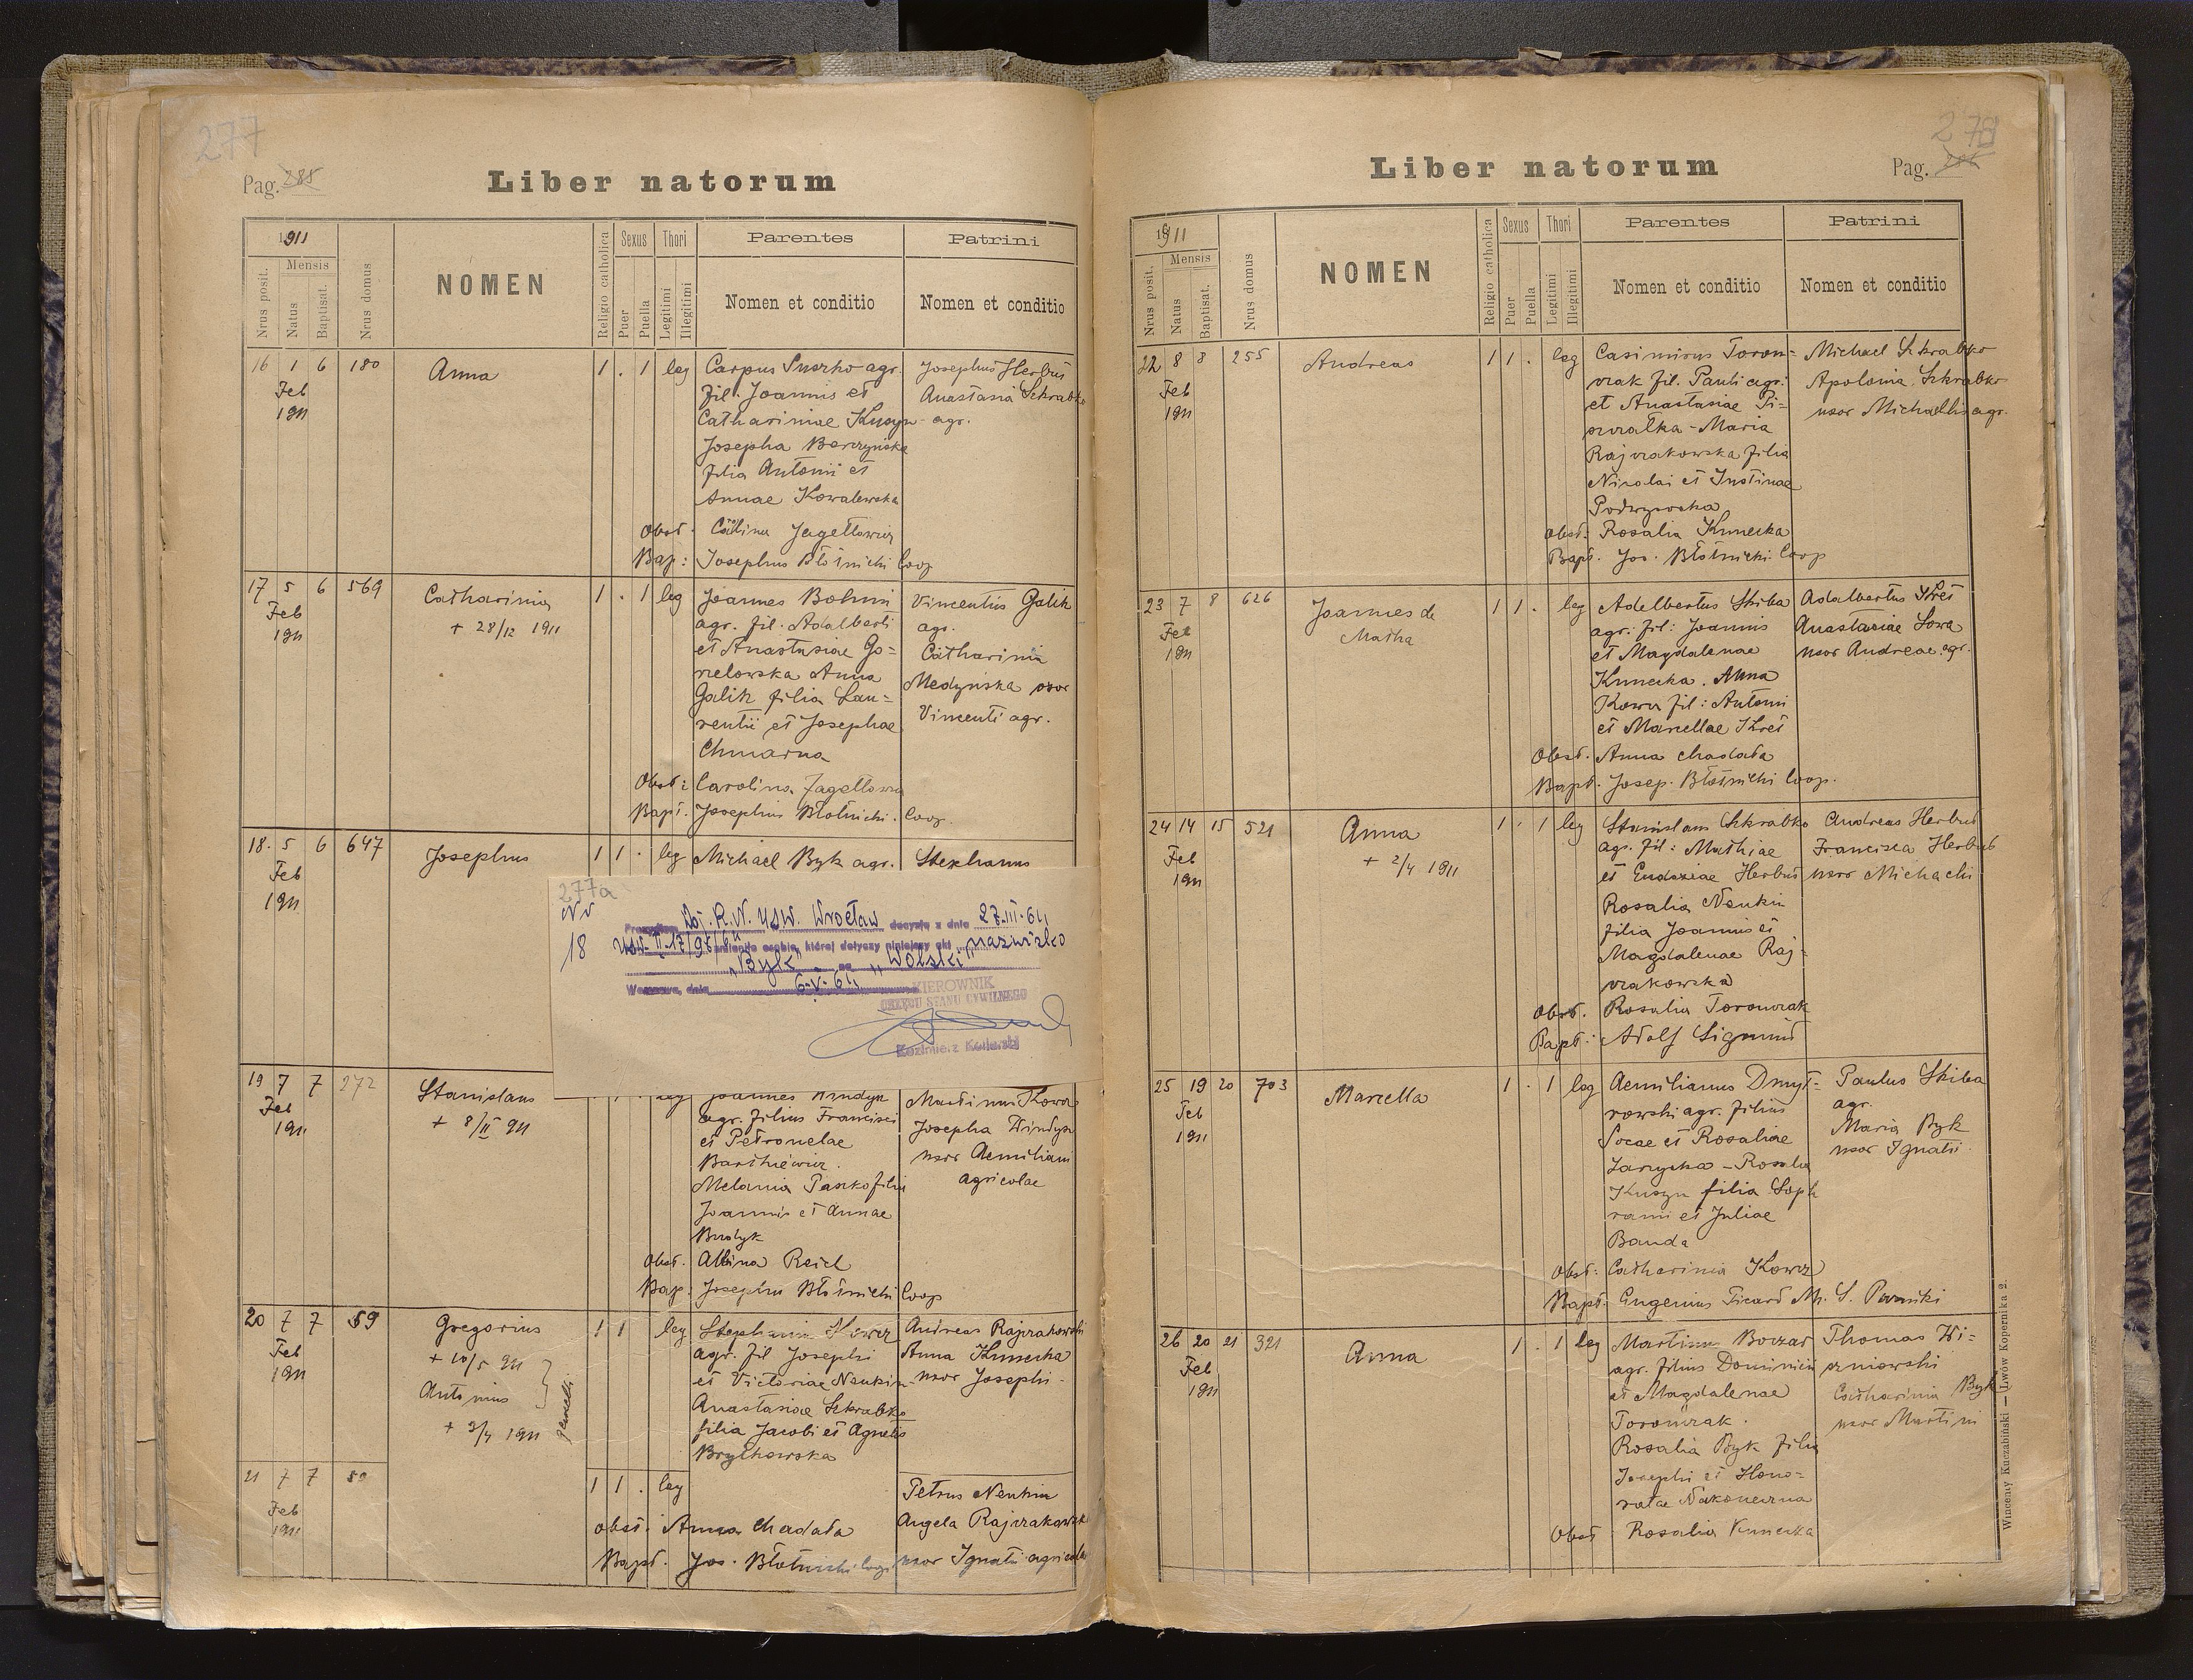 277
Pag. 285
Liber natorum
1911
Nrus posit.
Mensis
Natus
Baptisat.
Nrus domus
NOMEN
Religio catholica
Sexus
Puer
Puella
Thori
Legitimi
Illegitimi
Parentes
Nomen et conditio
Patrini
Nomen et conditio
16 1 6 180 Anna 1 . 1 leg
Feb
1911
Carpus Suszko agr.
fil. Joannis et
Catharinae Kuszyn
Josepha Berezyńska
filia Antonii et
Annae Kowalewska
Josephus Herbut
Anastasia Szkrabko
agr.
Obst. Carolina Jagellowicz
Bap: Josephus Błótnicki Coop
17 5 6 569 Catharina 1 . 1 leg
Feb
1911
+ 28/12 1911
Joannes Bohun
agr. fil. Adalberti
et Anastasiae Go=
relowska Anna
Galik filia Lau=
rentii et Josephae
Chmarna
Vincentius Galik
agr.
Catharina
Medyńska uxor
Vincenti agr.
Obst: Carolina Jagellowicz
Bapt. Josephus Błotnicki. Coop.
18. 5 6 647 Josephus 1 1 . leg Michael Byk agr. Stephanus
Feb
1911
277a
Nr
18
Prezydium Woj. R.N. USW. Wrocław decyzją z dnia 27.III.64
USW-II-17/95/64 zmieniło osobie, której dotyczy niniejszy akt nazwisko
"Byk" na "Wolski"
Warszawa, dnia 6.V.64
KIEROWNIK
URZĘDU STANU CYWILNEGO
Kazimierz
19 7 7 272 Stanislaus leg
Feb
1911
+ 8/II 911
Joannes Hindyk
agr. filius Francisci
et Petronelae
Bartkiewicz.
Melania Paszko filia
Joannis et Annae
Budyk
Martinus Kowcz
Josepha Hindyk
uxor Aemiliani
agricolae
Obst. Albina Reich
Bap: Josephus Błótnicki Coop
20 7 7 59 Gregorius 1 1 leg
Feb
1911
+ 10/5 911
Antonius
+ 3/4 1911
gemelli
Stephanus Kowcz
agr. fil Josephi
et Victoriae Neukin
Anastasiae Szkrabko
filia Jacobi et Agnetis
Brylkowska
Andreas Rajzakowski
Anna Kunecka
uxor Josephi
21 7 7 59 1 1 . leg
Feb
1911
Petrus Neukin
Angela Rajzakowska
uxor Ignatii agricolae
Obst. Anna Chadata
Bapt. Jos. Błotnicki Coop.
278
Liber natorum
Pag. 286
1911
Nrus posit.
Mensis
Natus
Baptisat.
Nrus domus
NOMEN
Religio catholica
Sexus
Puer
Puella
Thori
Legitimi
Illegitimi
Parentes
Nomen et conditio
Patrini
Nomen et conditio
22 8 8 255 Andreas 1 1 . leg
Feb
1911
Casimirus Toron=
czak fil. Pauli agr.
et Anastasiae Pi=
szczatka - Maria
Rajzakowska filia
Nicolai et Justinae
Podwysocka
Michael Szkrabko
Apolonia Szkrabko
uxor Michaelis agr.
Obst: Rosalia Kunecka
Bapt. Jos. Błótnicki Coop
23 7 8 626 Joannes de
Matha 1 1 . leg
Feb
1911
Adelbertus Skiba
agr. fil: Joannis
et Magdalenae
Kunecka. Anna
Kowcz fil: Antoni
et Marcellae Kret
Adalbertus Kret
Anastasiae Sowa
uxor Andreae agr.
Obst. Anna Chadata
Bapt. Josep. Błótnicki Coop.
24 14 15 521 Anna 1 . 1 leg
Feb
1911
+ 2/4 1911
Stanislaus Szkrabko
agr. fil: Mathiae
et Eudoxiae Herbut
Rosalia Neukin
filia Joannis et
Magdalenae Raj-
zakowska
Andreas Herbut
Francisca Herbut
uxor Michaeli
Obst. Rosalia Toronczak
Bapt: Adolf Sigmund
25 19 20 703 Marcella 1 . 1 leg
Feb
1911
Aemilianus Dmyt-
rowski agr. filius
Lucae et Rosaliae
Zarycka - Rosalia
Kuszyn filia Soph
ronii et Juliae
Banda
Paulus Skiba
agr.
Maria Byk
uxor Ignatii
Obst: Catharina Kowcz
Bapt. Eugenius Ficard M. S.
26 20 21 321 Anna 1 . 1 leg
Feb
1911
Martinus Boczar
agr. filius Dominici
et Magdalenae
Toronczak.
Rosalia Byk filia
Josephi et Hono=
ratae Nakoneczna
Thomas Wi=
szniowski
Catharina Byk
uxor Martini
Obst Rosalia Kunecka
Wincenty Kuczabiński — Lwów Kopernika 2.